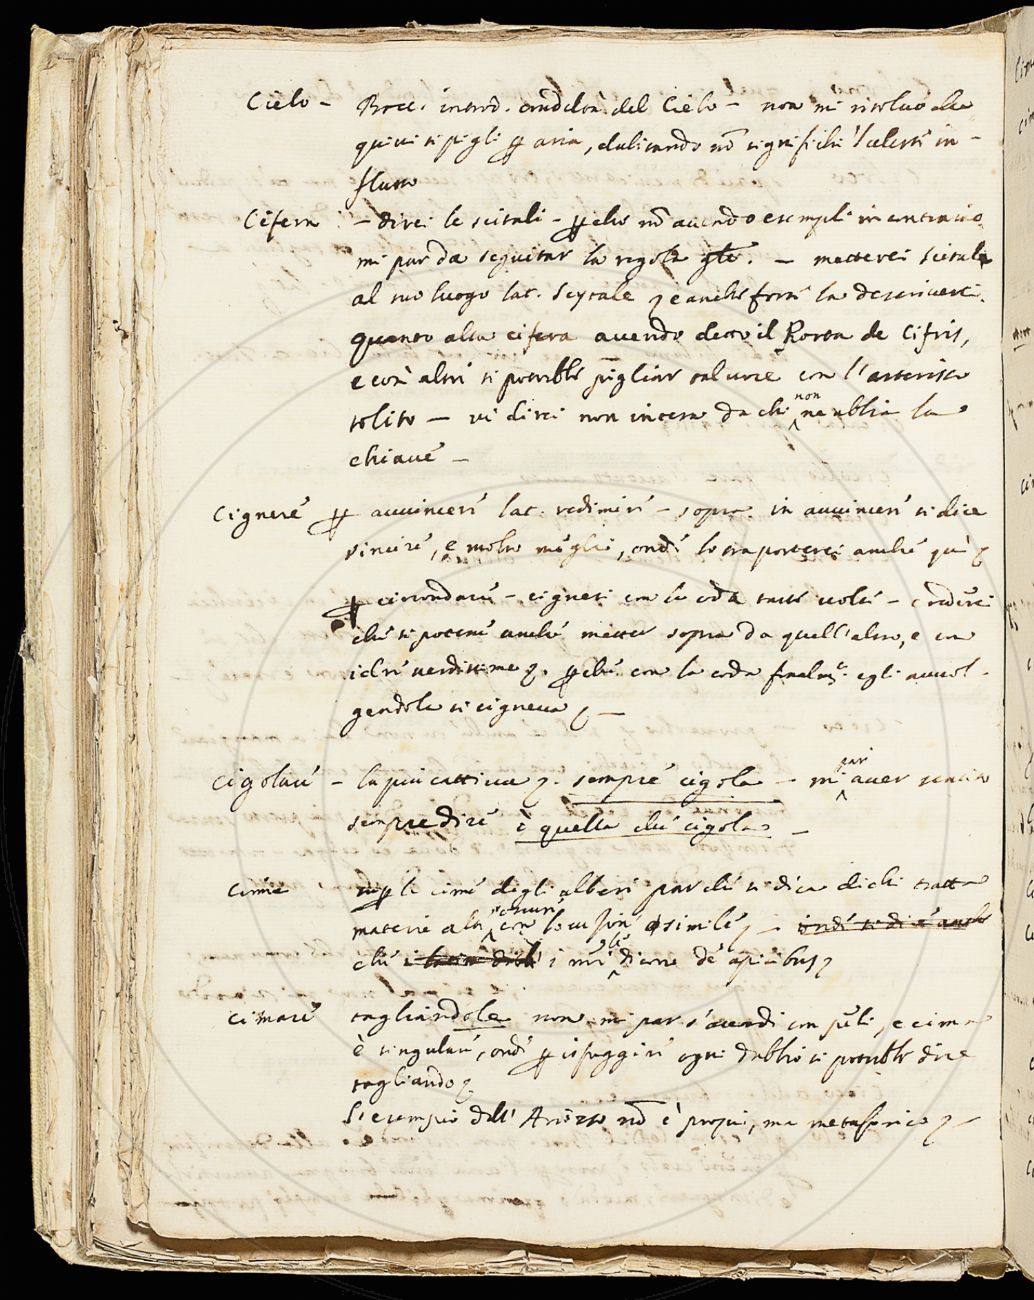 Cielo – Bocc. introd. crudeltà del Cielo – non mi risolvo che
quivi si pigli per aria, dubitando nō significhi l'celesti in-
flusso
Cifera – direi le scitali – perche nō avendo esempli in contrario
mi par da seguitar la regola gñle. – metterei scitala
al suo luogo lat. Scytale e anche forsi la descriverei.
quanto alla cifera avendo detto il Porta de Cifris,
e così altri si potrebbe pigliar tal voce con l'asterisco
solito – vi direi non intesa da chi non ne abbia la
chiave –
Cignere per avvincere lat. redimire – sopra in avvincere si dice
vincire, e molto meglio, onde lo trasporterei anche quì
per circondare – cignesi con la coda tante volte – crederei
che si potesse anche metter sopra da quell'altro, e con
perche con la coda finalmte. egli avvol-
gendola si cigneva –
Cigolare – la piu cattiva sempre cigola – mi par aver sentito
sempre dire è quella che cigola –
Cima le cime degli alberi par che si dica di chi tratta
materie alte con simile – onde si dice anche
che
Cimare tagliandole non mi par s'accordi con peli, e cima
è singulare, onde per isfuggire ogni dubbio si potrebbe dire
tagliando
L'esempio dell'Ariosto nō è proprio, ma metaforico –